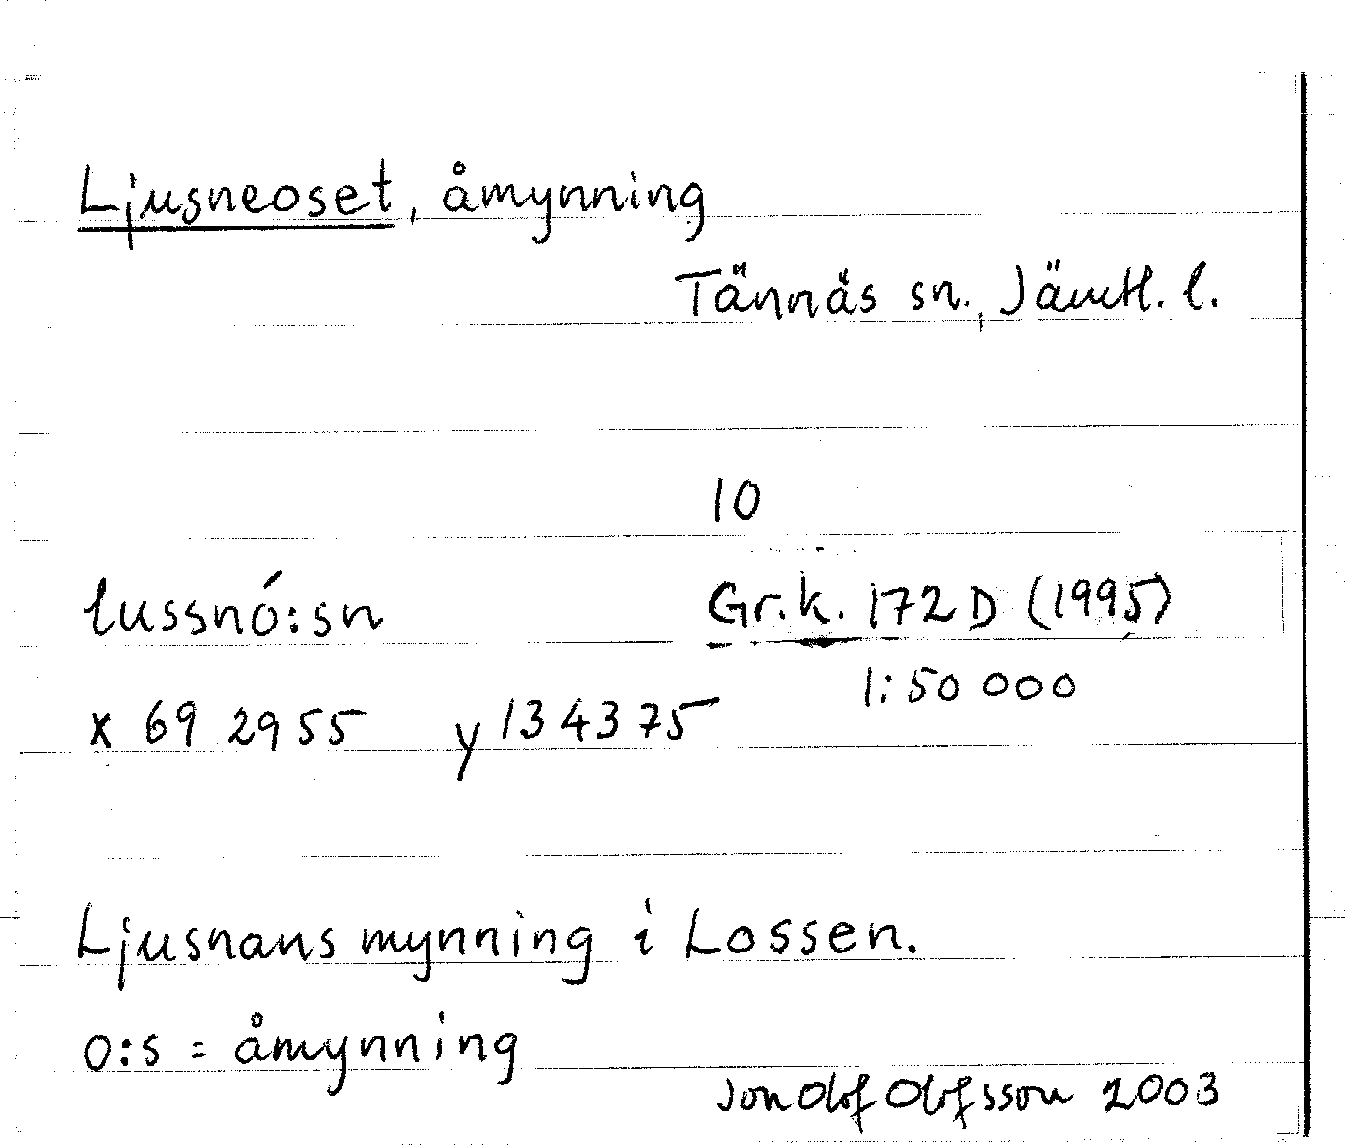 Ljusneoset, åmynning
Tännäs sn., Jämtl. l.
10
lussnó:sn
Gr.k. 172 D (1995)
1:50 000
x 69 2955 y 134375
Ljusnans mynning i Lossen.
o:s = åmynning
Jon Olof Olofsson 2003